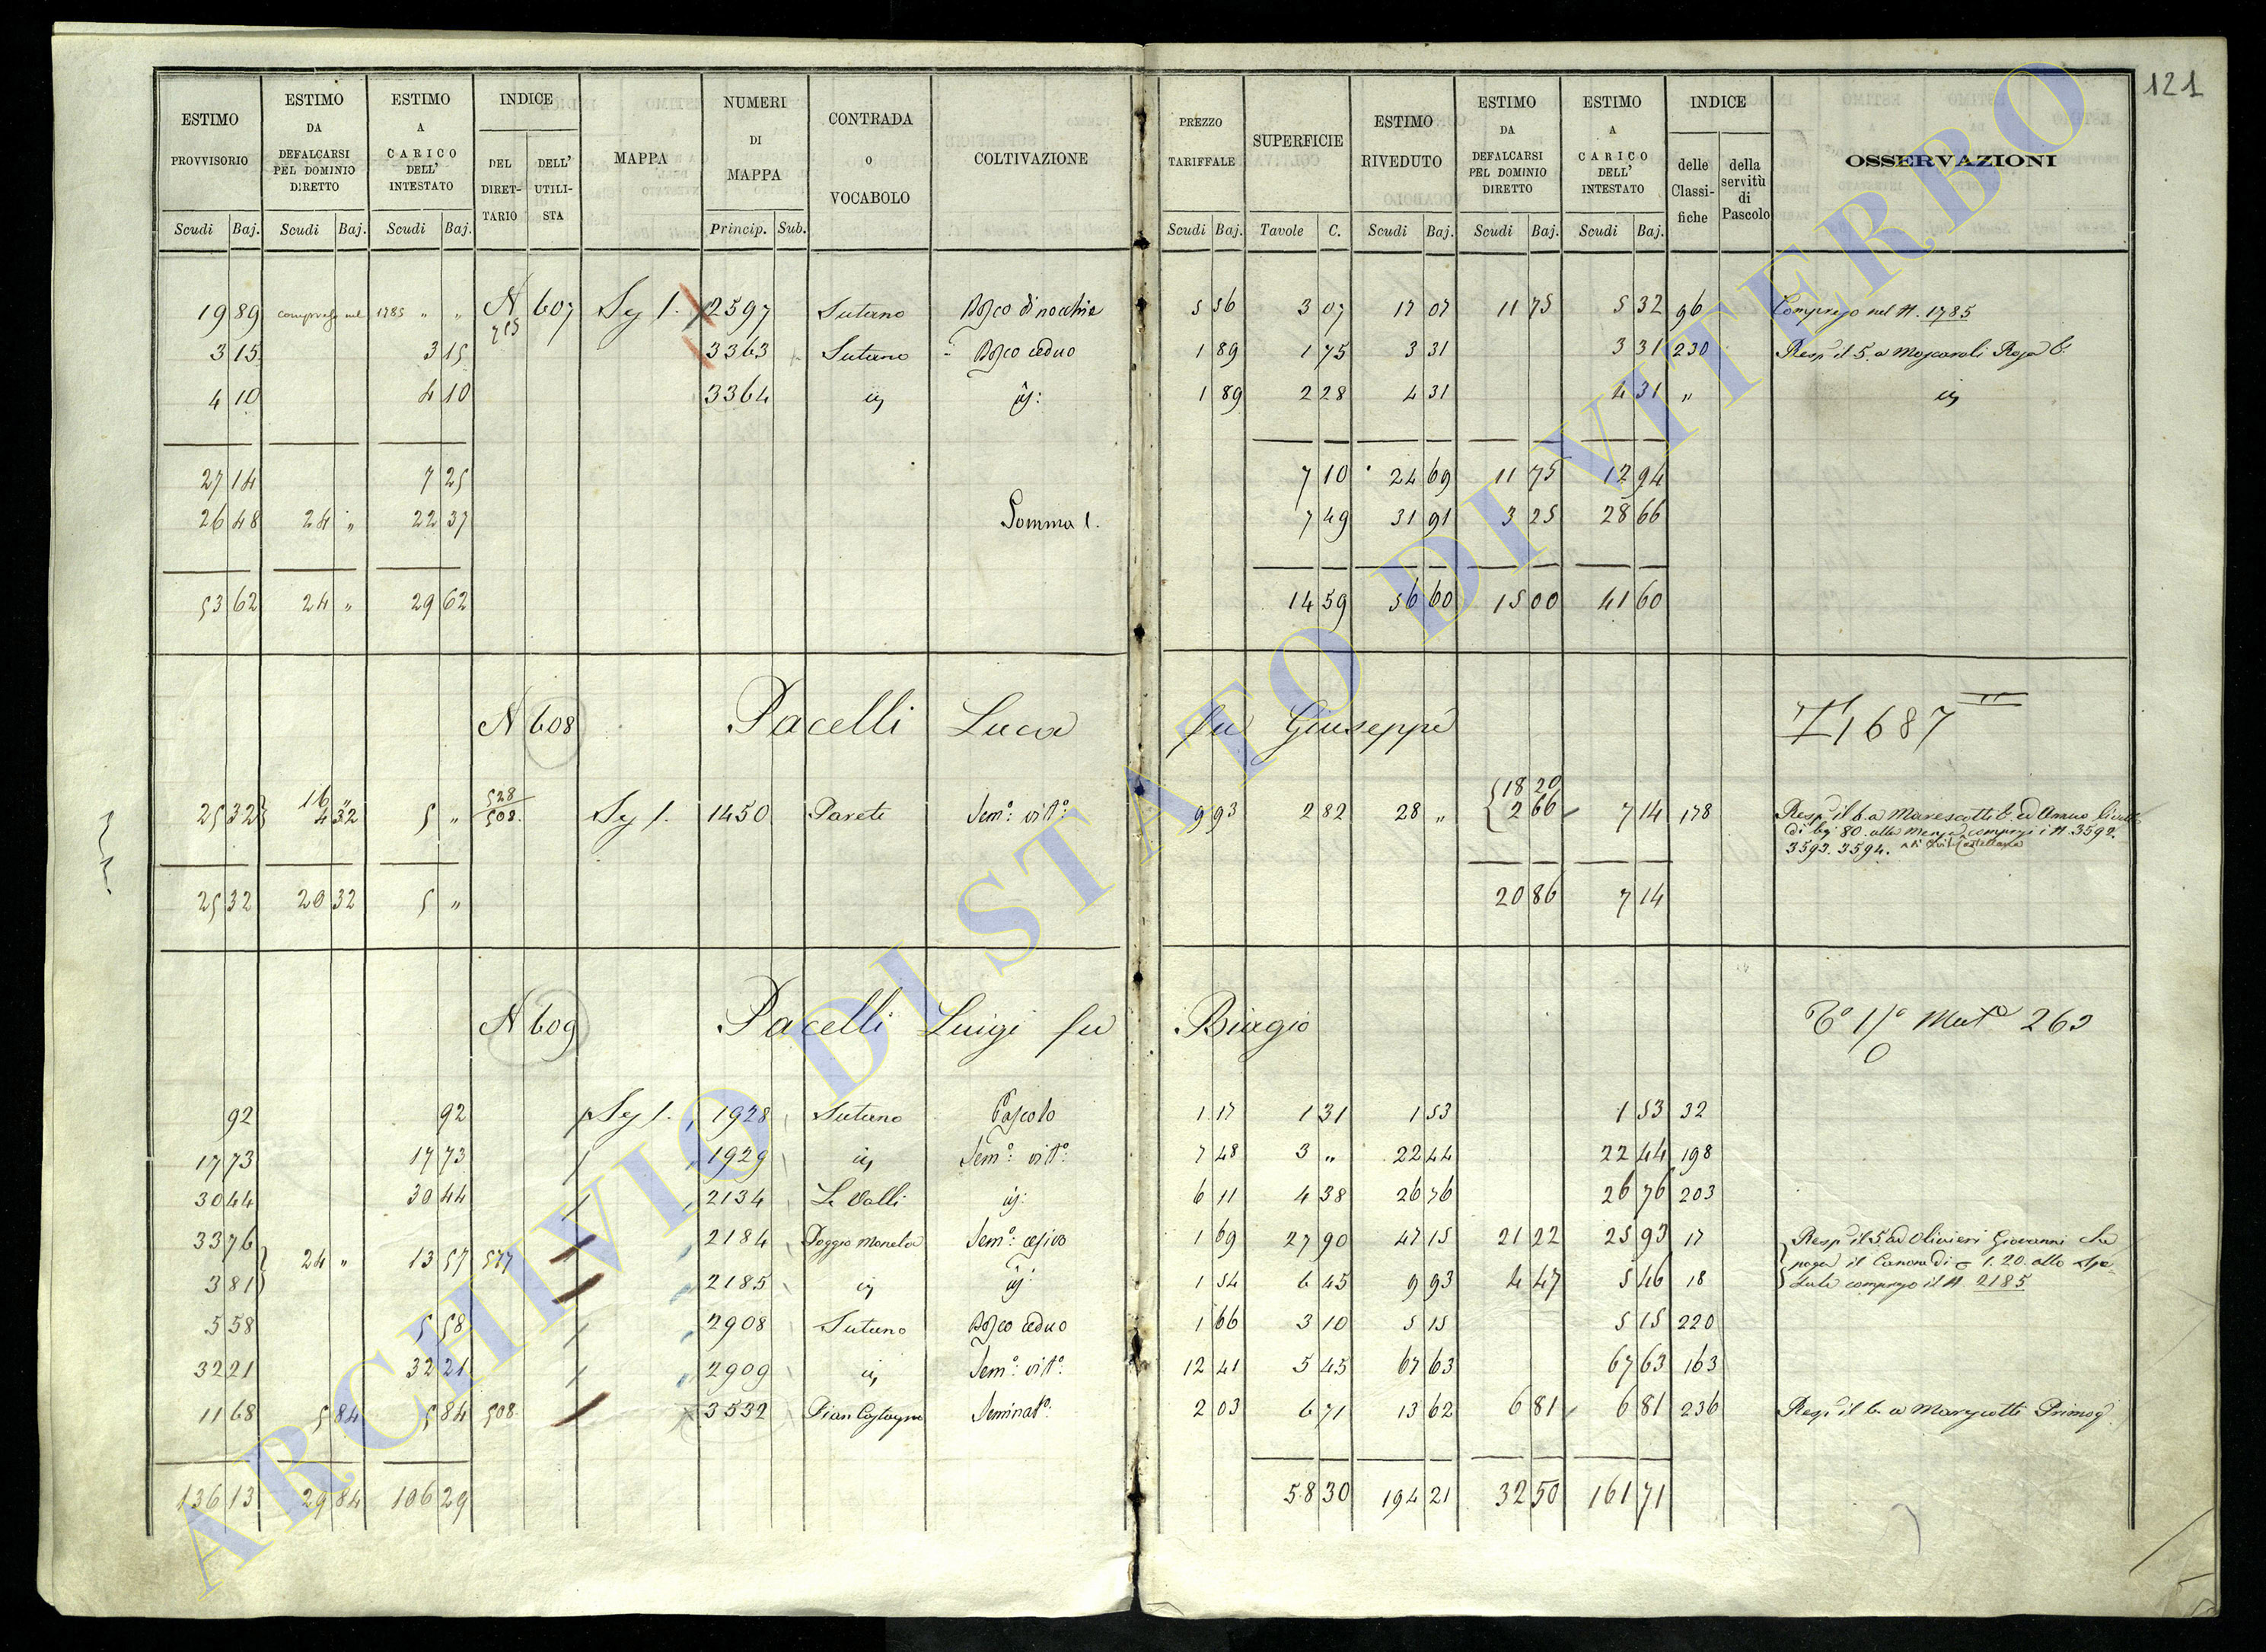 121
ESTIMO PROVVISORIO | ESTIMO DA DEFALCARSI PEL DOMINIO DIRETTO | ESTIMO A CARICO DELL' INTESTATO | INDICE | MAPPA | NUMERI DI MAPPA | CONTRADA O VOCABOLO | COLTIVAZIONE | PREZZO TARIFFALE | SUPERFICIE | ESTIMO RIVEDUTO | ESTIMO DA DEFALCARSI PEL DOMINIO DIRETTO | ESTIMO A CARICO DELL' INTESTATO | INDICE | OSSERVAZIONI
DEL DIRETTARIO | DELL' UTILISTA | delle Classifiche | della servitù di Pascolo
Scudi Baj. | Scudi Baj. | Scudi Baj. | Princip. Sub. | Scudi Baj. | Tavole C. | Scudi Baj. | Scudi Baj. | Scudi Baj.
19 89 1785 " " N 607 Sez 1. 2597 Sutano Bosco di nocchie 5 56 3 07 17 07 11 75 5 32 96 Compreso nel N. 1785
715
3 15 3 15 3363 Sutano Bosco ceduo 1 89 1 75 3 31 3 31 230 Resp. il 5. a
4 10 4 10 3364 1 89 2 28 4 31 4 31 "
27 14 7 25 7 10 24 69 11 75 12 94
26 48 24 " 22 37 Somma 1. 7 49 31 91 3 25 28 66
53 62 24 " 29 62 14 59 56 60 15 00 41 60
N 608 Pacelli Luca fu Giuseppe 1687 II
25 32 16 " 4 32 5 " 528 508. Sez 1. 1450 Parete Semo: vito: 9 93 2 82 28 " 18 20 2 66 7 14 178 Resp. il 6. a Marescotti
di baj: 80. alla Mensa compresi i N. 3592.
3593. 3594. di Civita Castellana
25 32 20 32 5 " 20 86 7 14
N 609 Pacelli Luigi fu Biagio 263
92 92 Sez 1. 1928 Sutano Pascolo 1 17 1 31 1 53 1 53 32
17 73 17 73 1929 Semo: vito: 7 48 3 " 22 44 22 44 198
30 44 30 44 2134 Le Valli 6 11 4 38 26 76 26 76 203
33 76 24 " 13 57 577 2184 Poggio Semo: 1 69 27 90 47 15 21 22 25 93 17 Resp. il 5 ad Olivieri Giovanni che
paga il Canone di 1. 20. allo Spe-
3 81 2185 1 54 6 45 9 93 4 47 5 46 18 dale compreso il N. 2185
5 58 5 58 2908 Sutano Bosco ceduo 1 66 3 10 5 15 5 15 220
32 21 32 21 2909 Semo: vito: 12 41 5 45 67 63 67 63 163
11 68 5 84 5 84 508. 3532 Pian Castagno Seminato: 2 03 6 71 13 62 6 81 6 81 236 Resp. il 6. a Marescotti Primog.
136 13 29 84 106 29 58 30 194 21 32 50 161 71
ARCHIVIO DI STATO DI VITERBO